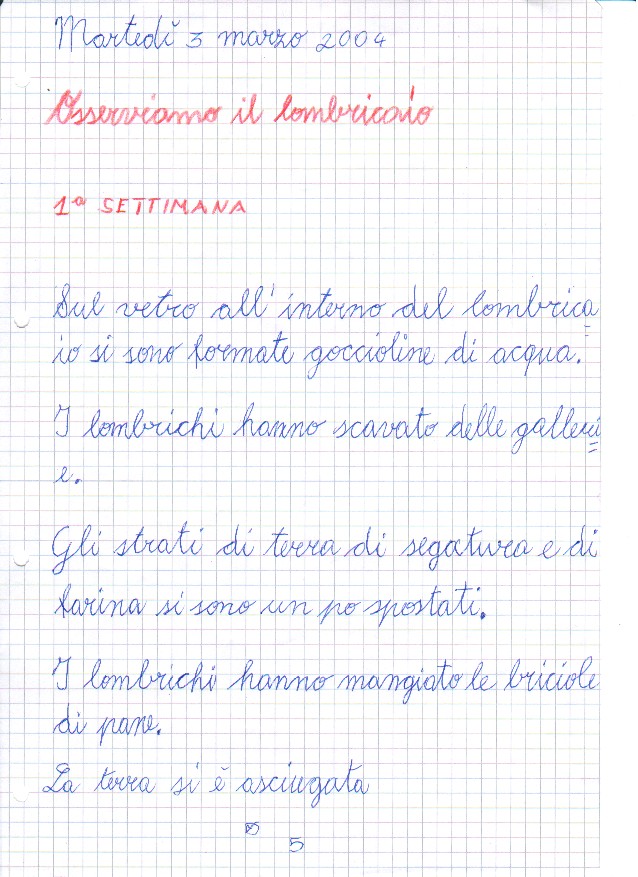 Martedì 3 marzo 2004
Osserviamo il lombricaio
1ª SETTIMANA
Sul vetro all'interno del lombrica
io si sono formate goccioline di acqua.
I lombrichi hanno scavato delle galleri
e.
Gli strati di terra di segatura e di
farina si sono un po spostati.
I lombrichi hanno mangiato le briciole
di pane.
La terra si è asciugata
5